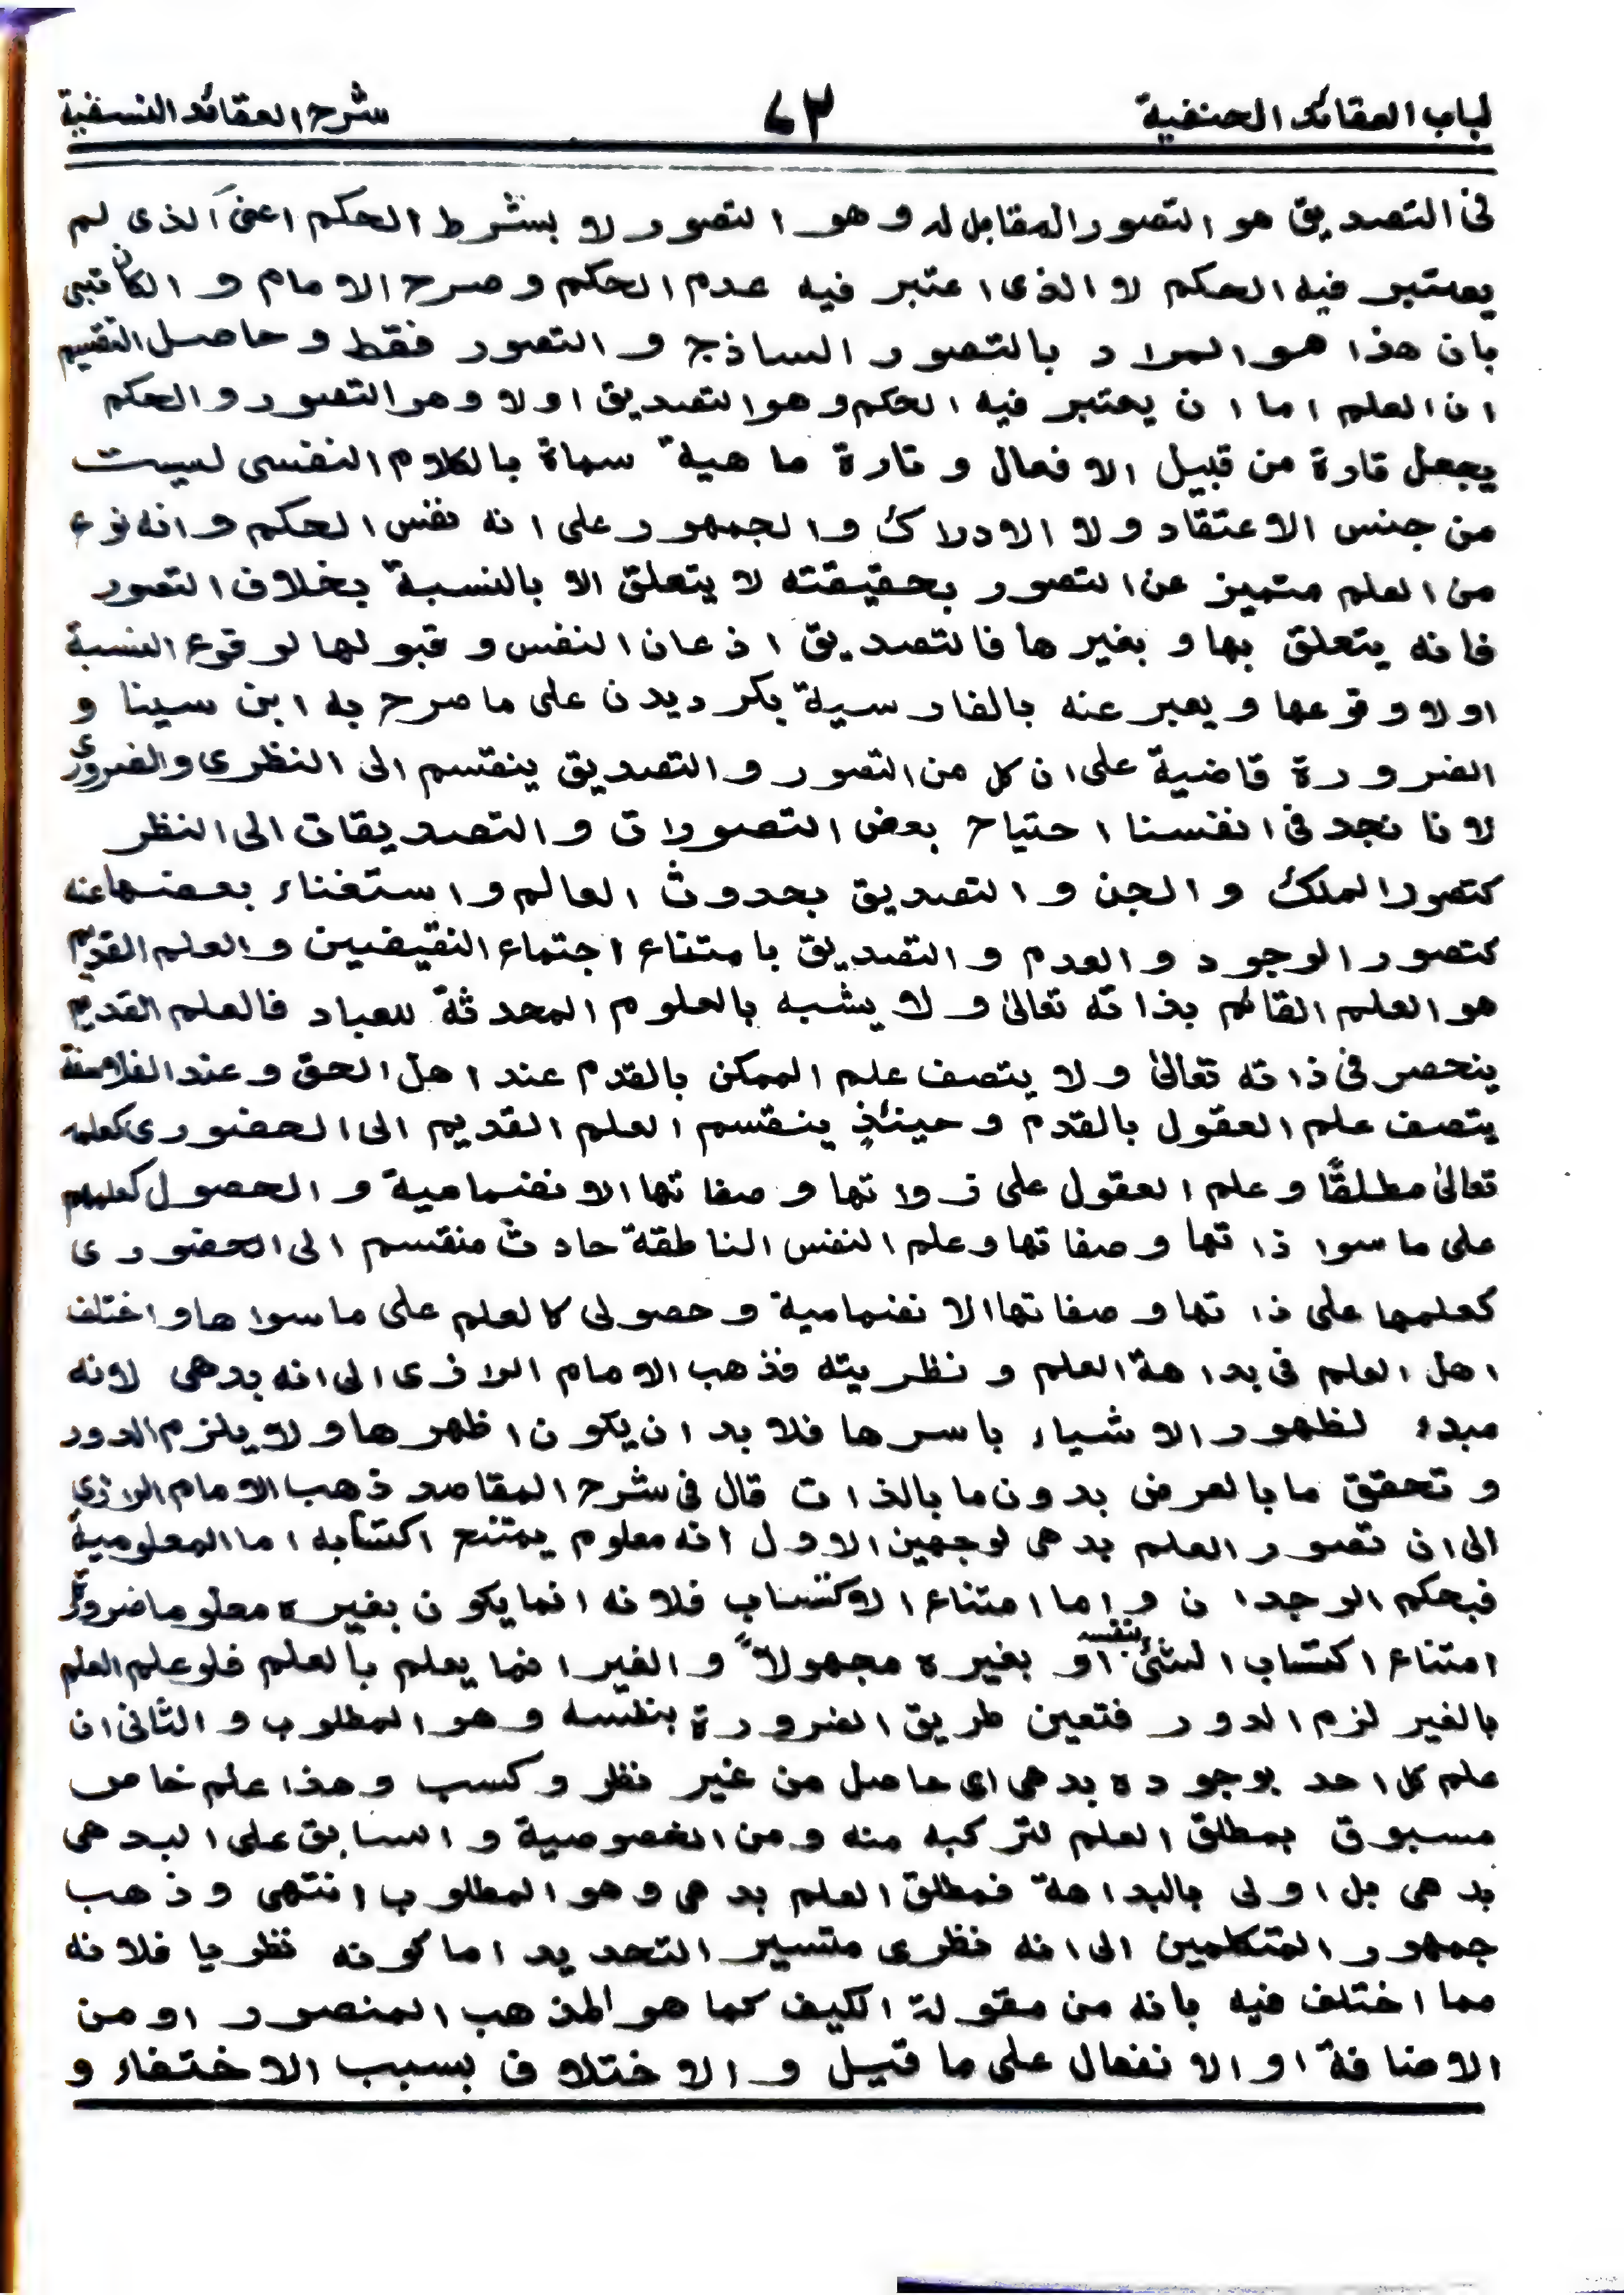 لباب العقائد الحنفية ٤٢ شرح العقائد النسفية
فی التصديق هو التصور المقابل له و هو التصور لا بشرط الحكم اعنی الذی لم
يعتبر فيه الحكم لا الذی اعتبر فيه عدم الحكم و صرح الامام و الكاتبی
بان هذا هو المراد بالتصور الساذج و التصور فقط و حاصل التقسيم
ان العلم اما ان يعتبر فيه الحكم و هو التصديق او لا و هو التصور و الحكم
يجعل تارة من قبيل الافعال و تارة ماهية سماة بالكلام النفسی ليست
من جنس الاعتقاد و لا الادراك و الجمهور علی انه نفس الحكم و انه نوع
من العلم متميز عن التصور بحقيقته لا يتعلق الا بالنسبة بخلاف التصور
فانه يتعلق بها و بغيرها فالتصديق اذعان النفس و قبولها لوقوع النسبة
او لا وقوعها و يعبر عنه بالفارسية بكرديدن علی ما صرح به ابن سينا و
الضرورة قاضية علی ان كل من التصور و التصديق ينقسم الی النظری و الضروری
لانا نجد فی انفسنا احتياج بعض التصورات و التصديقات الی النظر
كتصور الملك و الجن و التصديق بحدوث العالم و استغناء بعضها عنه
كتصور الوجود و العدم و التصديق بامتناع اجتماع النقيضين و العلم القديم
هو العلم القائم بذاته تعالیٰ و لا يشبه بالعلوم المحدثة للعباد فالعلم القديم
ينحصر فی ذاته تعالیٰ و لا يتصف علم الممكن بالقدم عند اهل الحق و عند الفلاسفة
يتصف علم العقول بالقدم و حينئذٍ ينقسم العلم القديم الی الحضوری كعلمه
تعالیٰ مطلقًا و علم العقول علی ذواتها و صفاتها الانضمامية و الحصول كعلمهم
علی ما سوا ذاتها و صفاتها و علم النفس الناطقة حادث منقسم الی الحضوری
كعلمها علی ذاتها و صفاتها الانضمامية و حصولی كالعلم علی ما سواها و اختلف
اهل العلم فی بداهة العلم و نظريته فذهب الامام الرازی الی انه بدهی لانه
مبدء لظهور الاشياء باسرها فلا بد ان يكون اظهرها و لا يلزم الدور
و تحقق ما بالعرض بدون ما بالذات قال فی شرح المقاصد ذهب الامام الرازی
الی ان تصور العلم بدهی لوجهين الاول انه معلوم يمتنع اكتسابه اما المعلومية
فبحكم الوجدان و اما امتناع الاكتساب فلانه انما يكون بغيره معلوما ضرورة
امتناع اكتساب الشئ بنفسه او بغيره مجهولاً و الغير انما يعلم بالعلم فلو علم العلم
بالغير لزم الدور فتعين طريق الضرورة بنفسه و هو المطلوب و الثانی ان
علم كل احد بوجوده بدهی ای حاصل من غير نظر و كسب و هذا علم خاص
مسبوق بمطلق العلم لتركبه منه و من الخصوصية و السابق علی البدهی
بدهی بل اولی بالبداهة فمطلق العلم بدهی و هو المطلوب انتهی و ذهب
جمهور المتكلمين الی انه نظری متسير التحديد اما كونه نظريا فلانه
مما اختلف فيه بانه من مقولة الكيف كما هو المذهب المنصور او من
الاضافة او الانفعال علی ما قيل و الاختلاف بسبب الاختفاء و